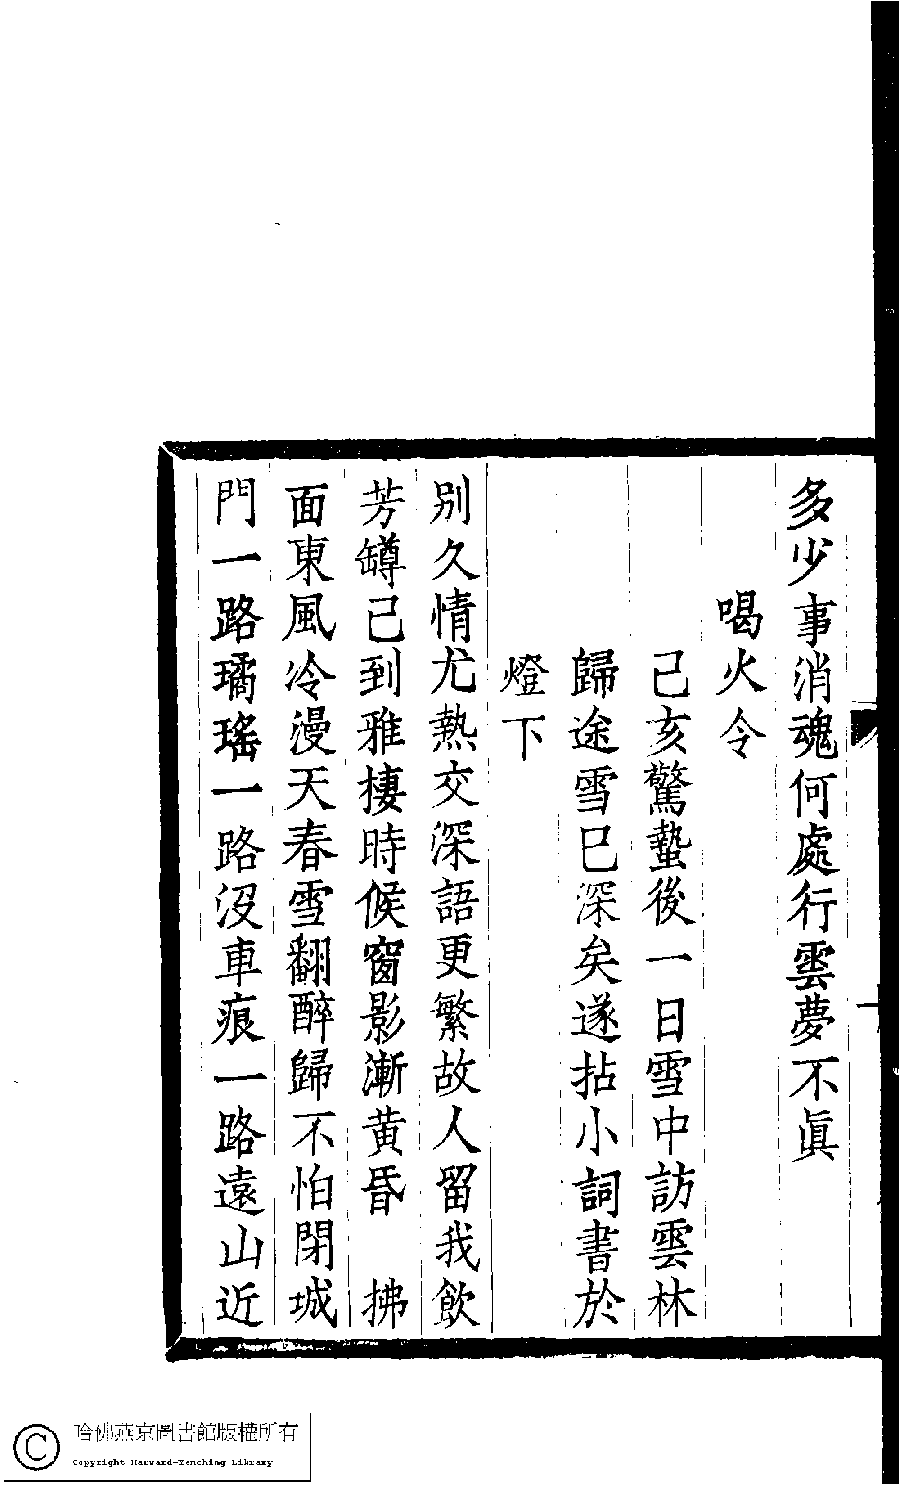 多少事消魂何處行雲夢不眞
喝火令
己亥驚蟄後一日雪中訪雲林
歸途雪巳深矣遂拈小詞書於
燈下
別久情尤熱交深語更繁故人留我飲
芳罇已到雅棲時候窗影漸黄昏　拂
面東風冷漫天春雪翻醉歸不怕閉城
門一路璚瑤一路沒車痕一路遠山近
哈佛燕京圖書館版權所有
Copyright Harvard-Yenching Library